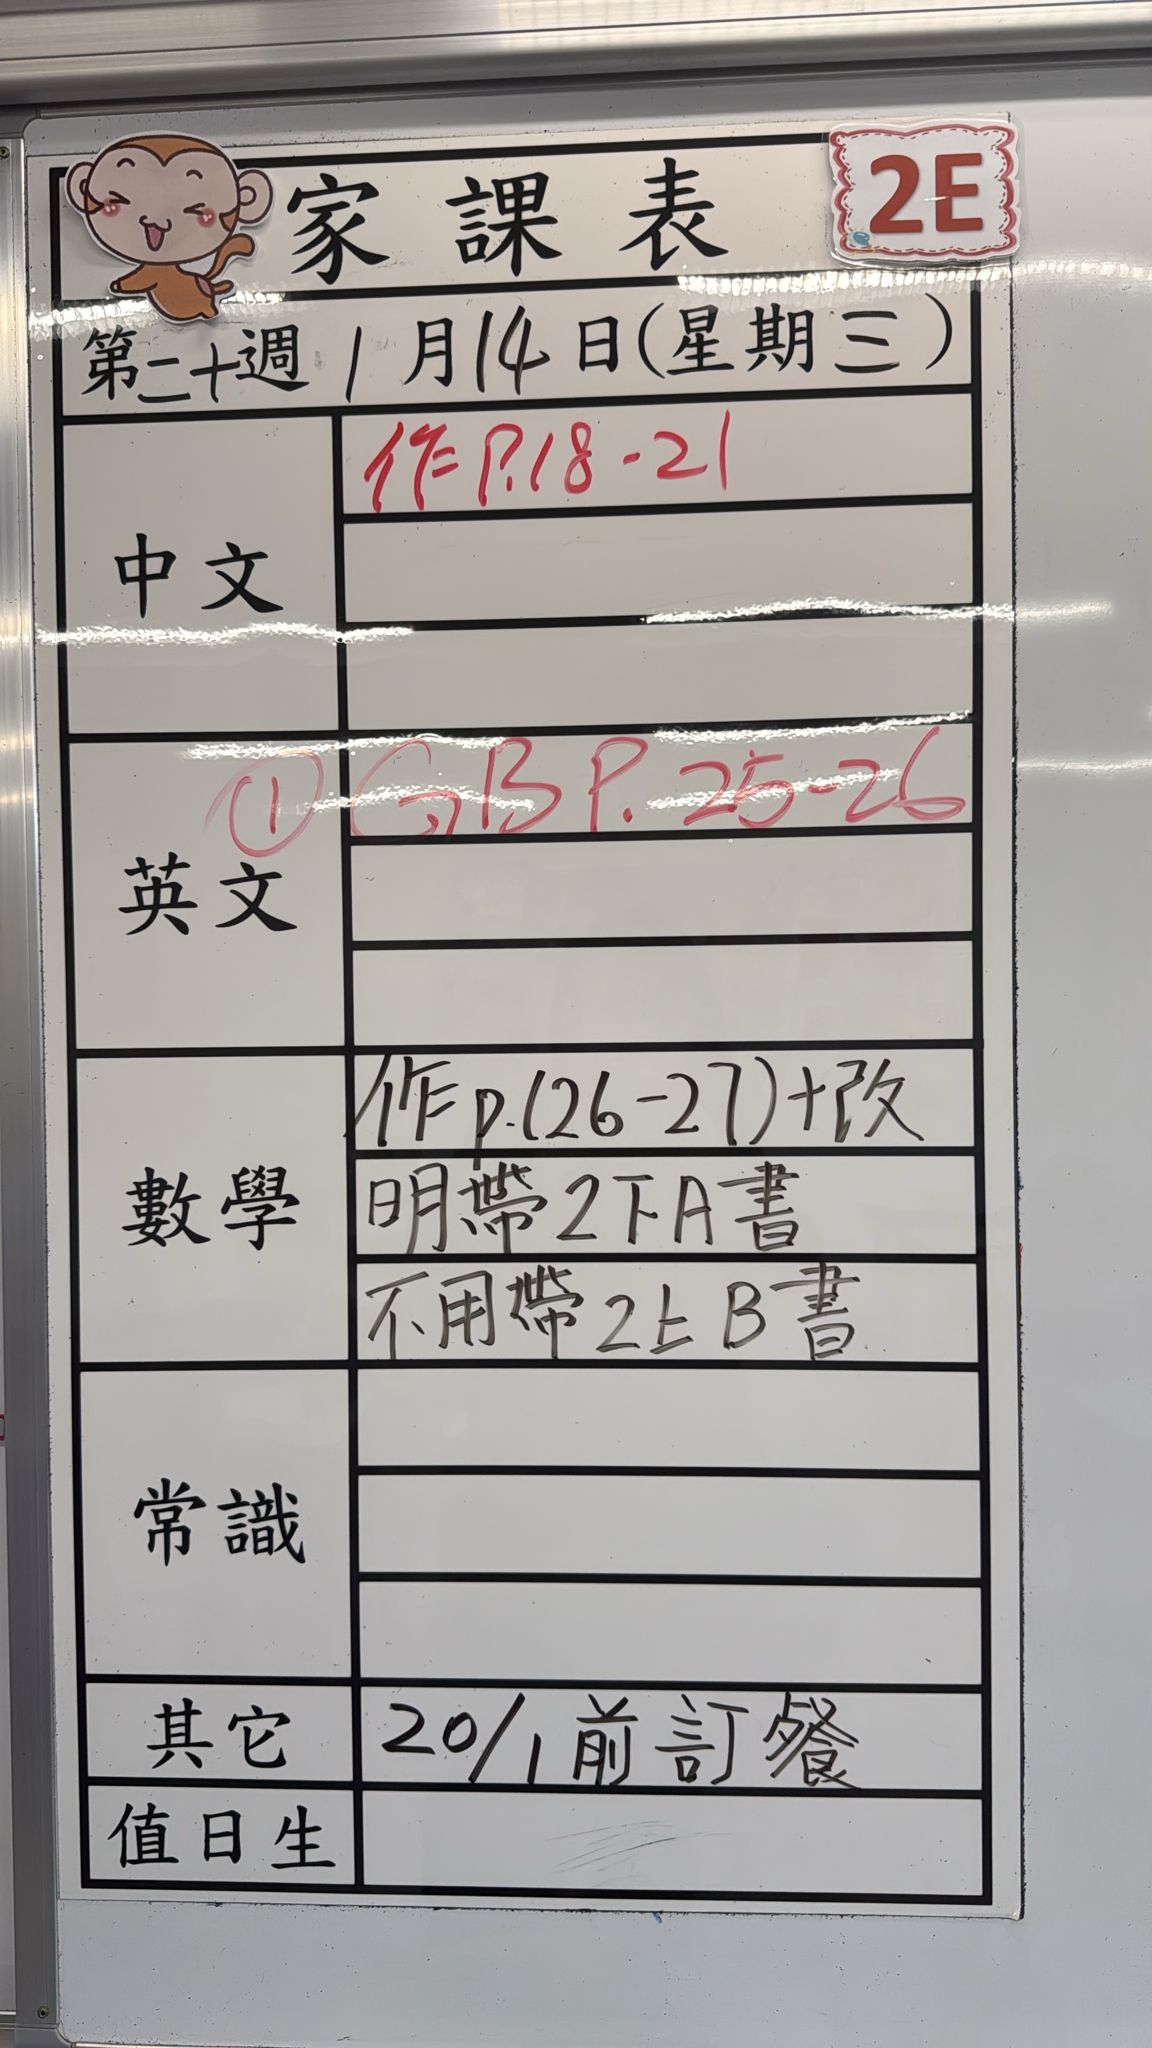 家課表
2E
第二十週 1月14日(星期三)
中文
作P.18-21
英文
① GB P. 25-26
數學
作p.(26-27)+改
明帶2下A書
不用帶2上B書
常識
其它
20/1前訂餐
值日生